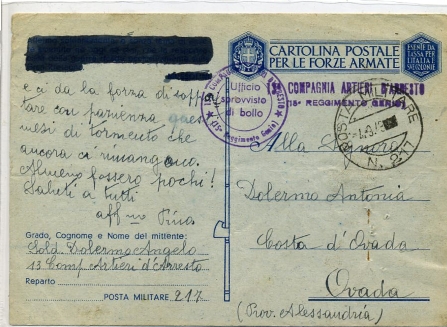 CARTOLINA POSTALE
PER LE FORZE ARMATE
ESENTE DA
TASSA PER
L'ITALIA E
SUE COLONIE
COMPAGNIA ARTIERI D'ARRESTO
REGGIMENTO GENIO
Ufficio
sprovvisto
di bollo
(5° Reggimento Genio)
POSTA MILITARE
N. 217
e ci dà la forza di soppor
tare con pazienza
mesi di tormento che
ancora ci rimangono.
Almeno fossero pochi!
Saluti a tutti
aff mo Pino
Grado, Cognome e Nome del mittente:
Sold. Dolermo Angelo
13 Comp Artieri d'Arresto
Reparto
POSTA MILITARE 217
Alla Signora
Dolermo Antonia
Costa d'Ovada
Ovada
(Prov. Alessandria)